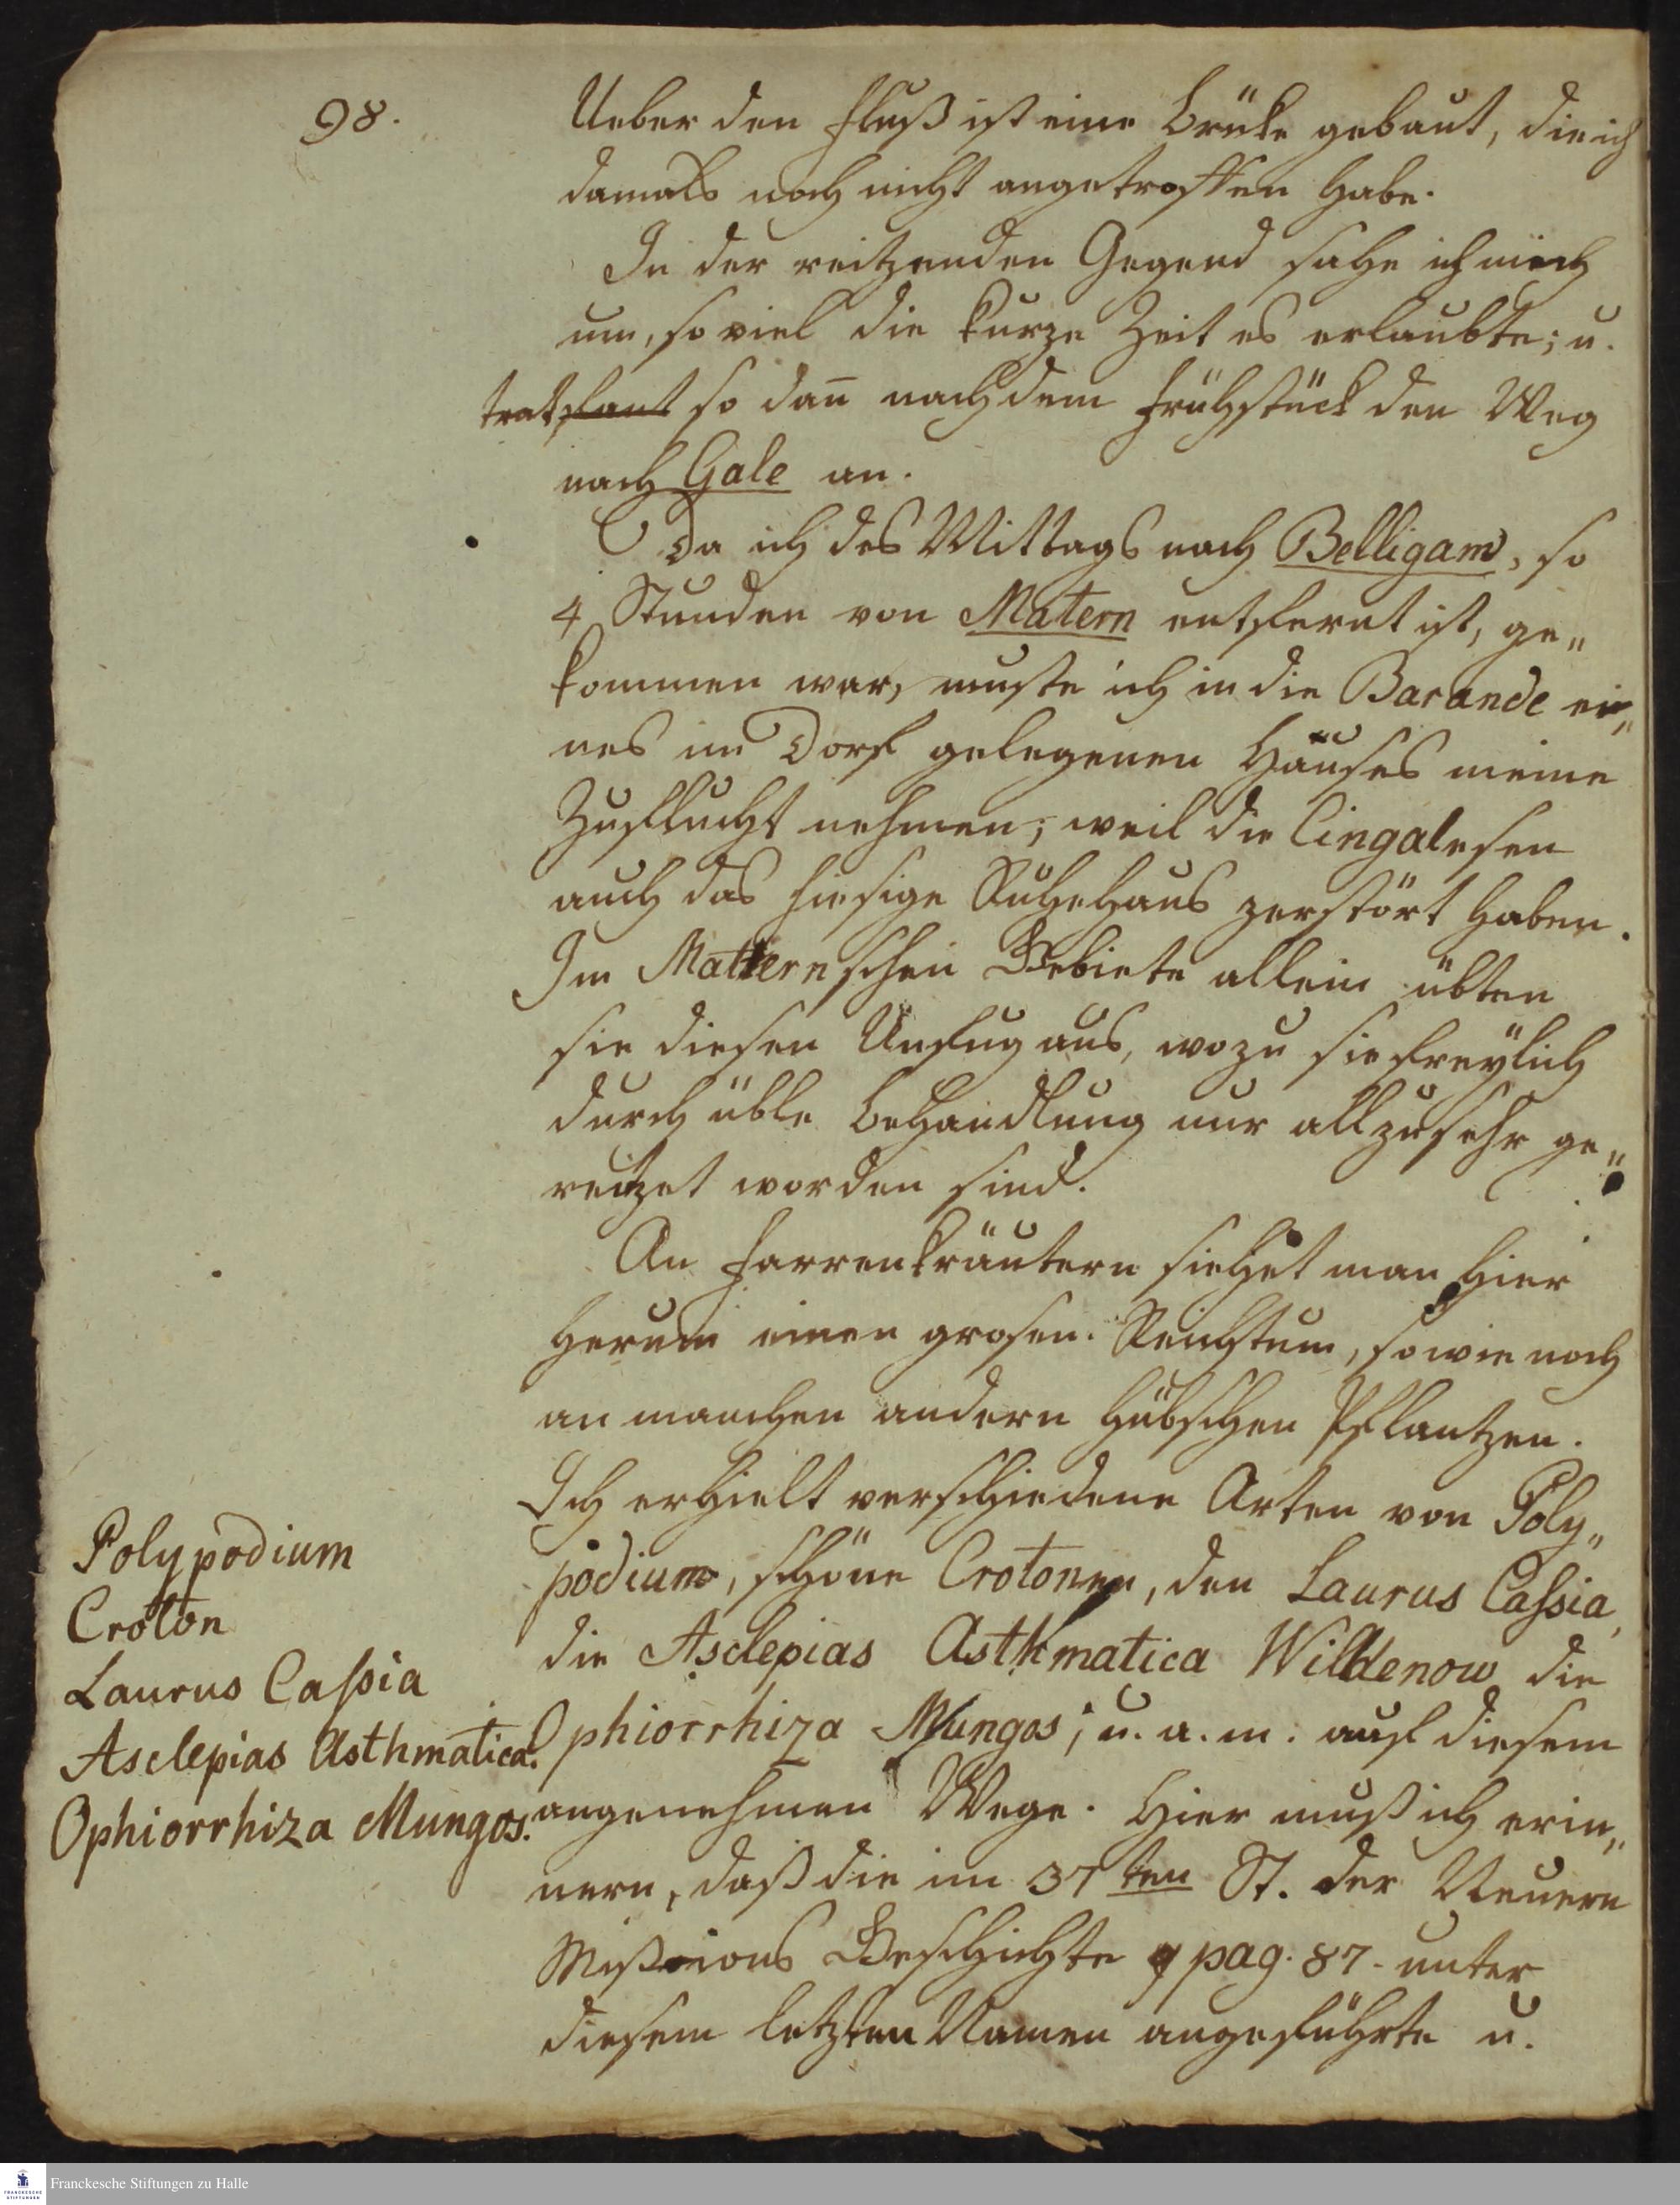 98.
Ueber den Fluß ist eine Brüke gebaut, die ich
damals noch nicht angetroffen habe.
In der reitzenden Gegend sahe ich mich
um, so viel die kurze Zeit es erlaubte; u.
trat so dan̄ nach dem Frühstück den Weg
nach Gale an.
Da ich des Mittags nach Belligam, so
4 Stunden von Matern entfernt ist, ge„
kommen war, muste ich in die Barande ei„
nes im Dorf gelegenen Hauses meine
Zuflucht nehmen; weil die Cingalesen
auch das hiesige Ruhehaus zerstört haben.
Im Maternschen Gebiete allein übten
sie diesen Unfug aus, wozu sie freÿlich
durch üble Behandlung nur allzusehr ge„
reitzet worden sind.
An Farrenkräutern siehet man hier
herum einen grosen Reichtum, so wie noch
an manchen andern hübschen Pflantzen.
Ich erhielt verschiedene Arten von Poly„
podium, schöne Crotonen, den Laurus Caſsia,
die Asclepias Asthmatica Wildenow die
Ophiorrhiza Mungos; u. a. m. auf diesem
angenehmen Wege. Hier muß ich erin„
nern, daß die im 37ten St. der Neuern
Mißions Geschichte pag. 87. unter
diesem letzten Namen angeführte u.
Polypodium
Croton
Laurus Caſsia
Asclepias Asthmatica.
Ophiorrhiza Mungos.
FRANCKESCHE
STIFTUNGEN
Franckesche Stiftungen zu Halle